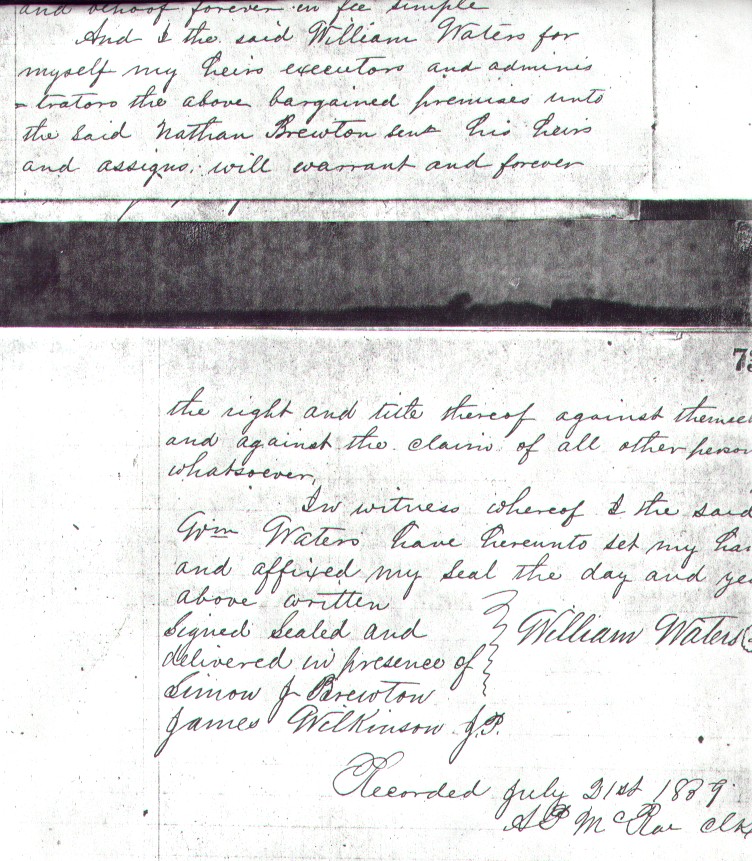 and behoof forever in fee simple
And I the said William Waters for
myself my heirs executors and adminis
-trators the above bargained premises unto
the said Nathan Brewton senr his heirs
and assigns, will warrant and forever
the right and title thereof against themsel
and against the claim of all other person
whatsoever,
In witness whereof I the said
Wm Waters have hereunto set my han
and affixed my seal the day and ye
above written
Signed Sealed and
delivered in presence of
William Waters
Simon J Brewton
James Wilkinson J.P.
Recorded July 21st 1839
McRae Clk